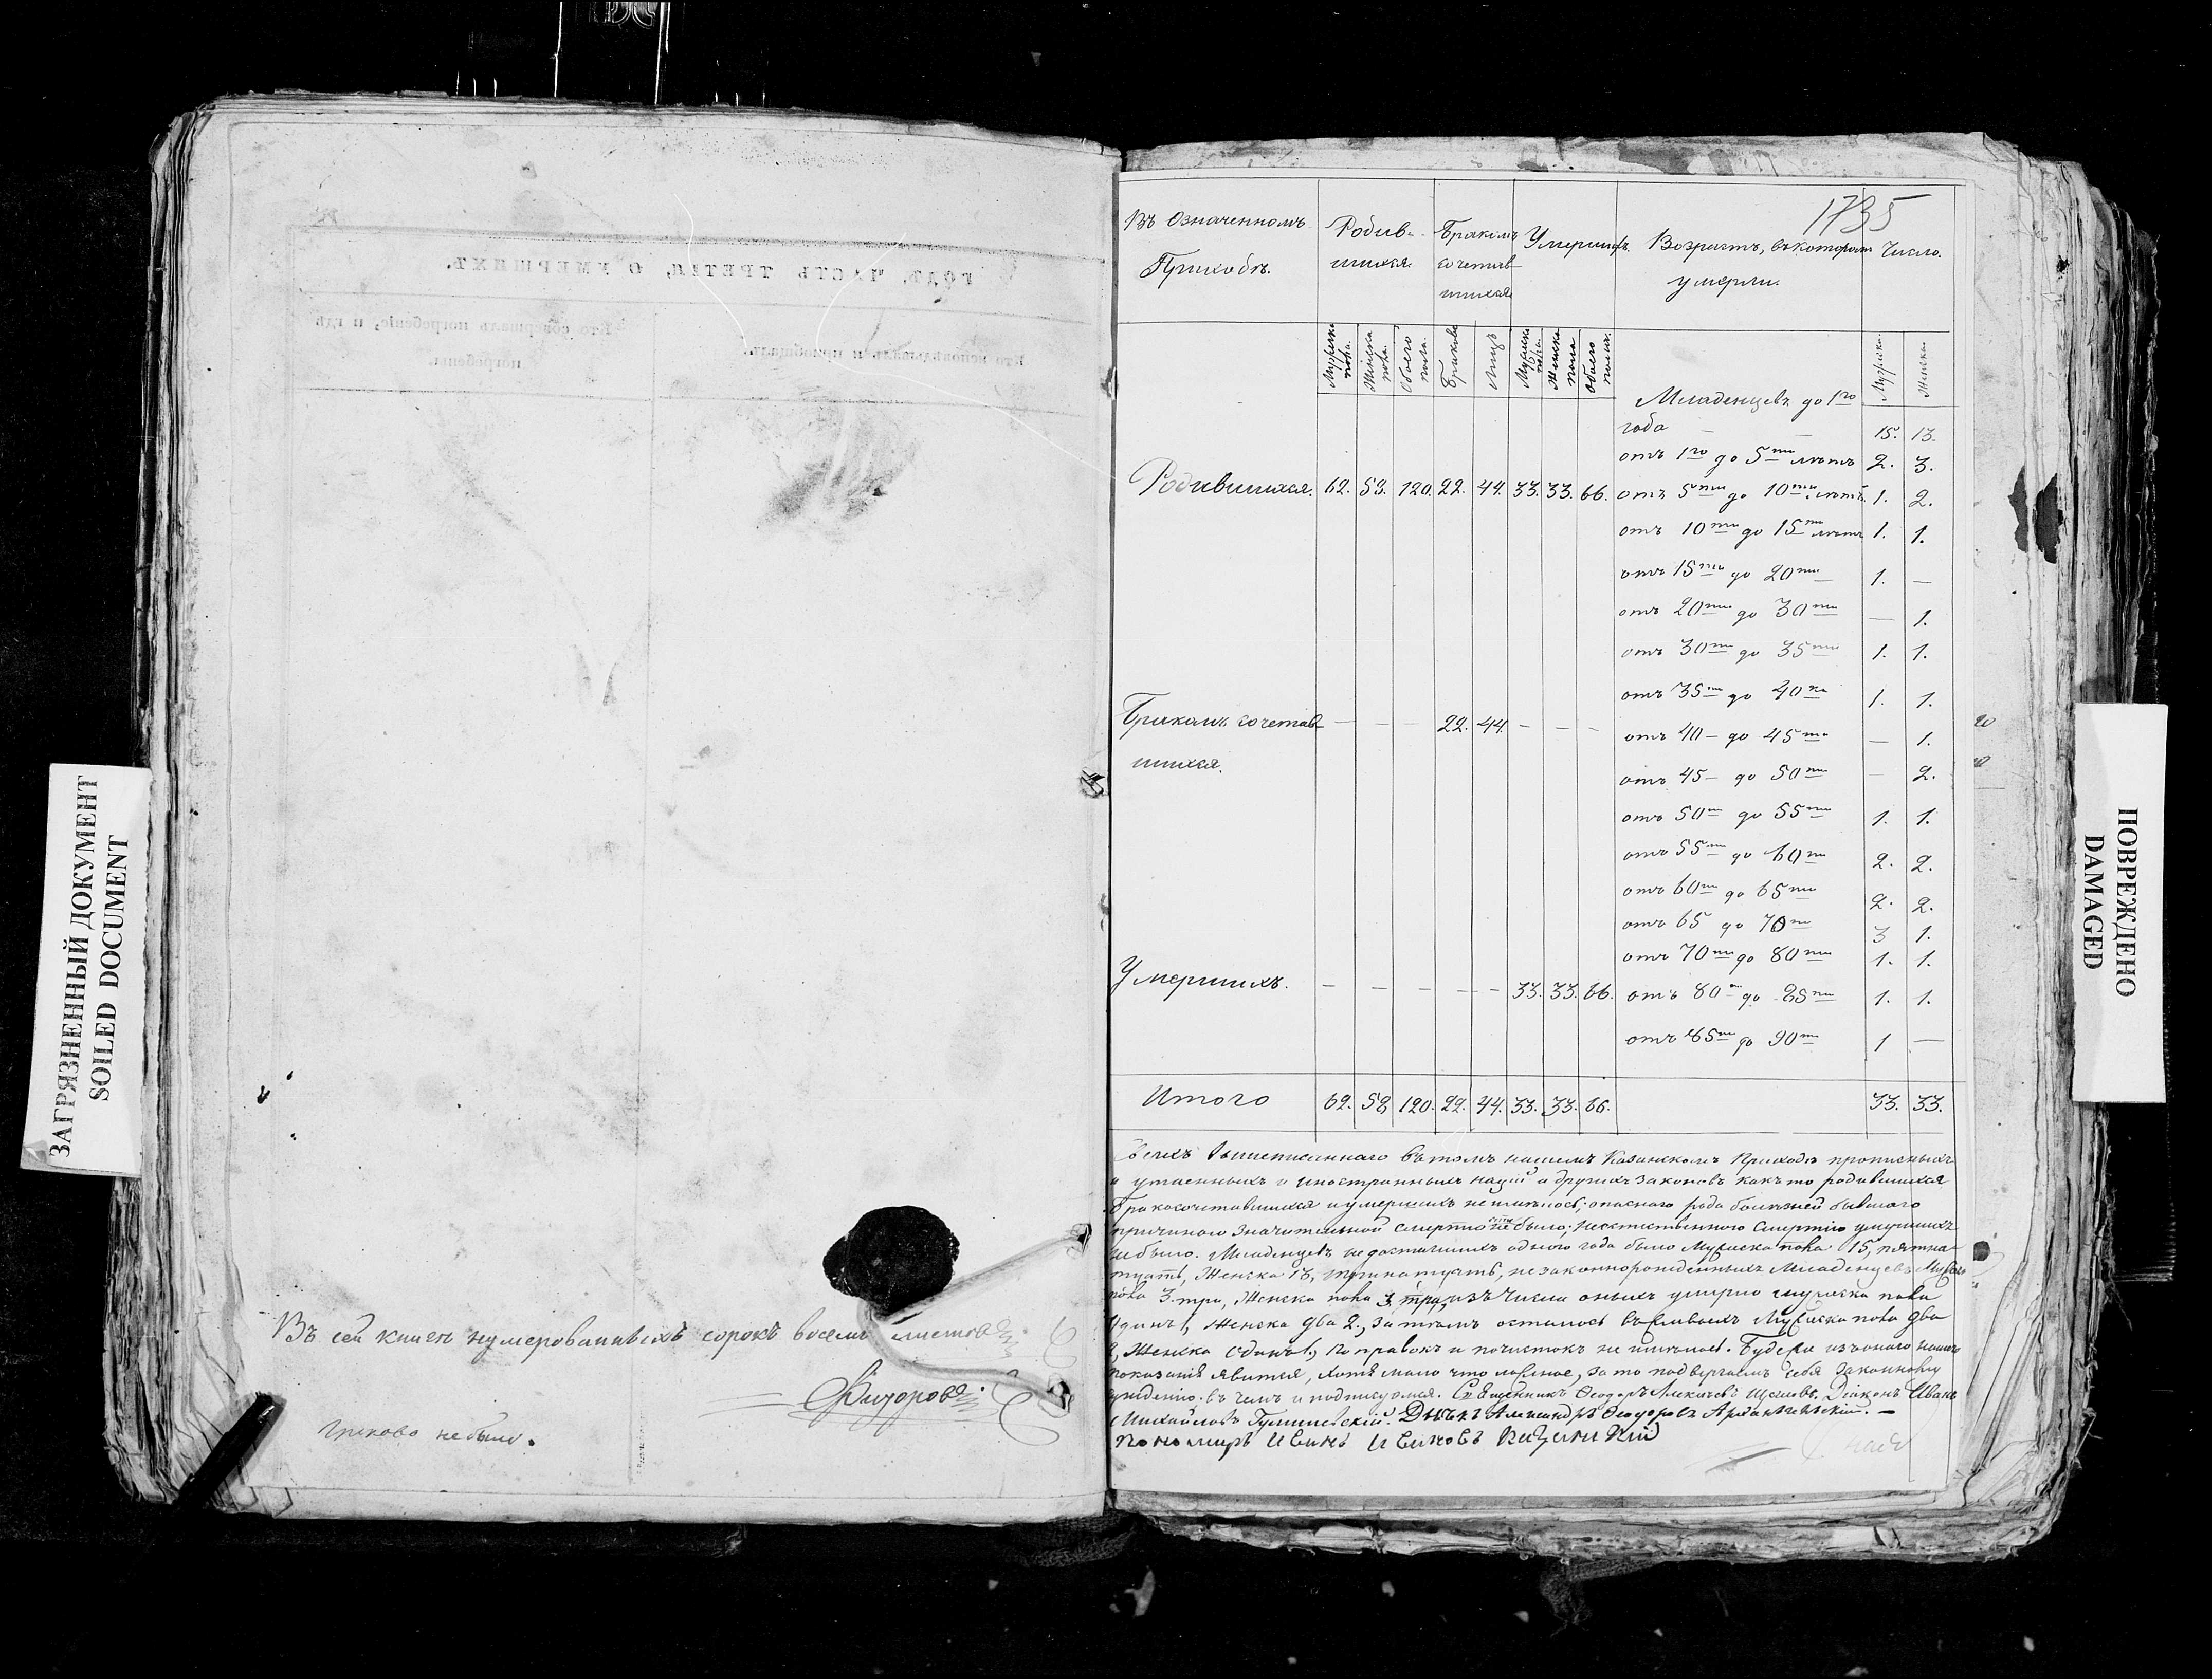 ЗАГРЯЗНЕННЫЙ ДОКУМЕНТ
SOILED DOCUMENT
ГОДЪ, ЧАСТЬ ТРЕТІЯ, О УМЕРШИХЪ.
Кто исповѣдывалъ и пріобщалъ.
Кто совершалъ погребеніе, и гдѣ
погребены.
Въ сей книгѣ нумерованныхъ сорокъ восемь листовъ
не было.
1735
Въ Означенномъ Приходѣ. Родив-шихся. Бракомъ сочетав-шихся Умершихъ. Возрастъ, въ которомъ умерли. Число.
Мужеска пола. Женска пола. Обоего пола. Браковъ Лицъ Мужеска пола. Женска пола Обоего пола. Мужска. Женска.
Младенцевъ до 1го
года — — 15. 13.
отъ 1го до 5ти лѣтъ 2. 3.
Родившихся. 62. 58. 120. 22. 44. 33. 33. 66. отъ 5ти до 10ти лѣтъ. 1. 2.
отъ 10ти до 15ти лѣтъ 1. 1.
отъ 15ти до 20ти 1. —
отъ 20ти до 30ти — 1.
отъ 30ти до 35ти 1. 1.
отъ 35ти до 40ка 1. 1.
Бракомъ сочетав- — — — 22. 44. — — — отъ 40 — до 45ти — 1.
шихся.
отъ 45 — до 50ти — 2.
отъ 50ти до 55ти 1. 1.
отъ 55ти до 60ти 2. 2.
отъ 60ти до 65ти 2. 2.
отъ 65 до 70ти 3 1.
отъ 70ти до 80ти 1. 1.
Умершихъ. — — — — — 33. 33. 66. отъ 80ти до 85ти 1. 1.
отъ 85ти до 90ти 1 —
Итого 62. 58 120. 22. 44. 33. 33. 66. 33. 33.
вышеписаннаго въ томъ нашемъ Казанскомъ Приходѣ прописныхъ
и утаенныхъ и иностранныхъ націй и другихъ законовъ какъ то родившихся
Бракосочетавшихся и умершихъ не имѣлось; опаснаго рода болѣзней бывшаго
причиною значительной смерти не было; неестественною смертію умершихъ
не было. Младенцевъ недостигшихъ одного года было Мужеска пола 15, пятна-
тцать, Женска 13, тринатцать, незаконнорожденныхъ Младенцевъ Мужска
пола 3. три, Женска пола 3, три, изъ числа оныхъ умерло мужеска пола
Одинъ 1, Женска два 2., за тѣмъ осталось въ живыхъ Мужеска пола два
2, Женска одинъ 1, поправокъ и почистокъ не имѣлось. Будеже изъ онаго нашего
показанія явится, хотя мало что ложное, за то подвергаемъ себя Законному
сужденію. въ чемъ и подписуемся. Священникъ Ѳеодоръ Діаконъ Иванъ
Михайловъ Дьячекъ Александръ Ѳеодоровъ
Пономарь Иванъ Ивановъ
ПОВРЕЖДЕНО
DAMAGED